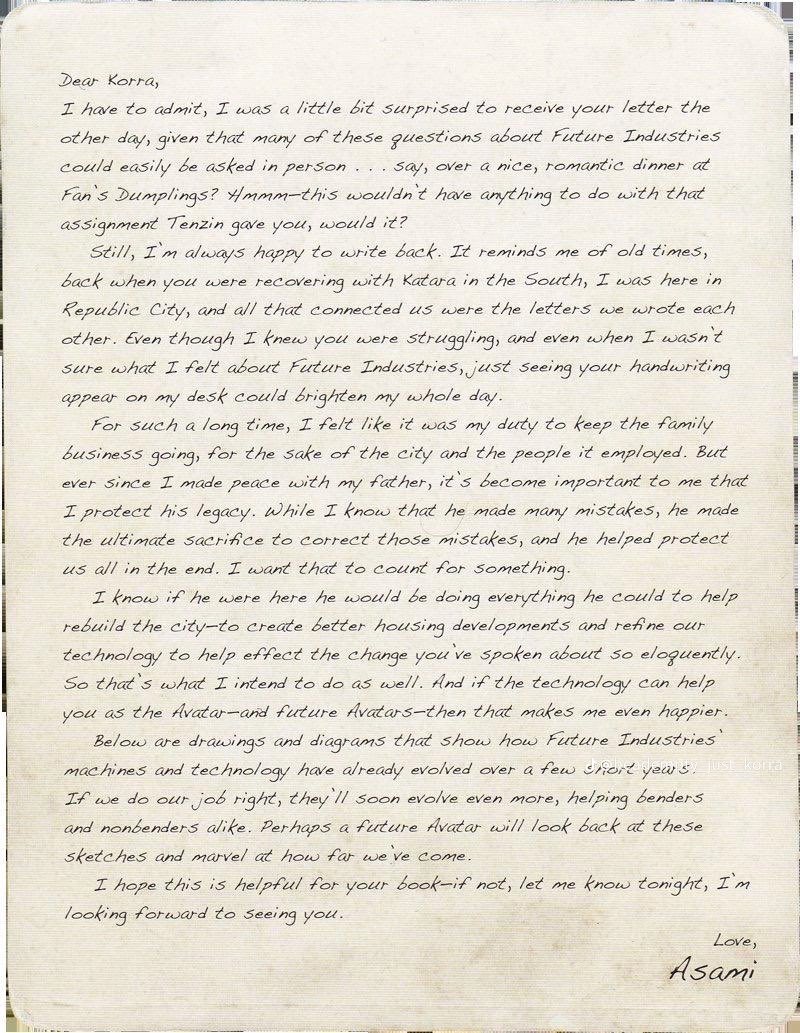 Dear Korra,
I have to admit, I was a little bit surprised to receive your letter the
other day, given that many of these questions about Future Industries
could easily be asked in person . . . say, over a nice, romantic dinner at
Fan's Dumplings? Hmmm—this wouldn't have anything to do with that
assignment Tenzin gave you, would it?
Still, I'm always happy to write back. It reminds me of old times,
back when you were recovering with Katara in the South, I was here in
Republic City, and all that connected us were the letters we wrote each
other. Even though I knew you were struggling, and even when I wasn't
sure what I felt about Future Industries, just seeing your handwriting
appear on my desk could brighten my whole day.
For such a long time, I felt like it was my duty to keep the family
business going, for the sake of the city and the people it employed. But
ever since I made peace with my father, it's become important to me that
I protect his legacy. While I know that he made many mistakes, he made
the ultimate sacrifice to correct those mistakes, and he helped protect
us all in the end. I want that to count for something.
I know if he were here he would be doing everything he could to help
rebuild the city—to create better housing developments and refine our
technology to help effect the change you've spoken about so eloquently.
So that's what I intend to do as well. And if the technology can help
you as the Avatar—and future Avatars—then that makes me even happier.
Below are drawings and diagrams that show how Future Industries'
machines and technology have already evolved over a few short years.
If we do our job right, they'll soon evolve even more, helping benders
and nonbenders alike. Perhaps a future Avatar will look back at these
sketches and marvel at how far we've come.
I hope this is helpful for your book—if not, let me know tonight, I'm
looking forward to seeing you.
Love,
Asami